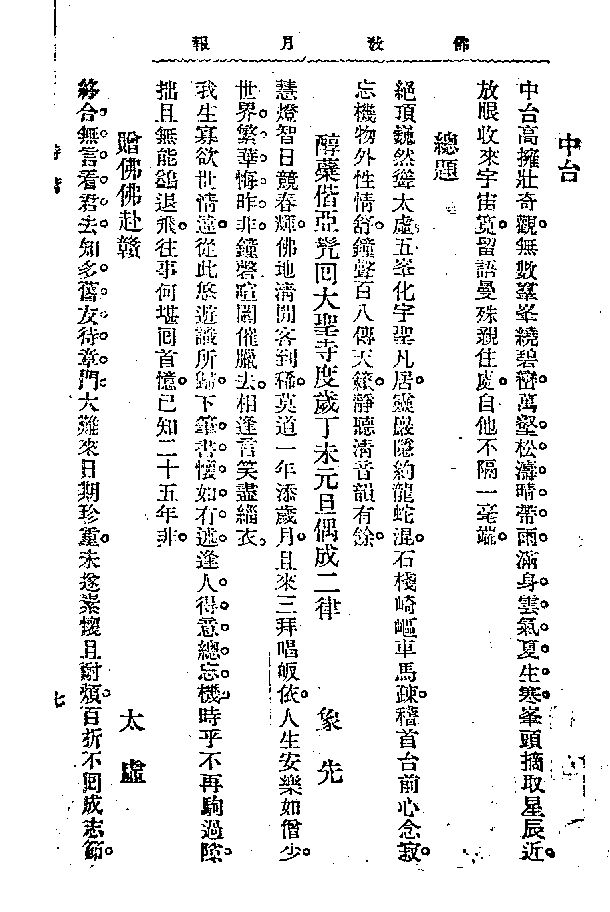 佛教月報
中台
中台高擁壯奇觀。無數羣峯繞碧巒。萬壑松濤晴帶雨。滿身雲氣夏生寒。峯頭摘取星辰近。
放眼收來宇宙寬。留語曼殊親住處。自他不隔一毫端。
總題
絕頂巍然聳太虛。五峯化宇聖凡居。靈巖隱約龍蛇混。石棧崎嶇車馬疎。稽首台前心念寂。
忘機物外性情舒。鐘聲百八傳天籟。靜聽清音韻有餘。
醇藥偕亞髠回大聖寺度歲丁未元旦偶成二律 象先
慧燈智日競春輝。佛地淸閒客到稀。莫道一年添歲月。且來三拜唱皈依。人生安樂如僧少。
世界繁華悔昨非。鐘磬喧闐催臘去。相逢言笑盡緇衣。
我生寡欲世情違。從此悠遊識所歸。下筆書懷如有述。逢人得意總忘機。時乎不再駒過隙。
拙且無能鷁退飛。往事何堪回首憶。已知二十五年非。
贈佛佛赴贛 太虛
終合無言看君去。知多舊友待章門。大難來日期珍重。未遂素懷且耐煩。百折不回成志節。
七